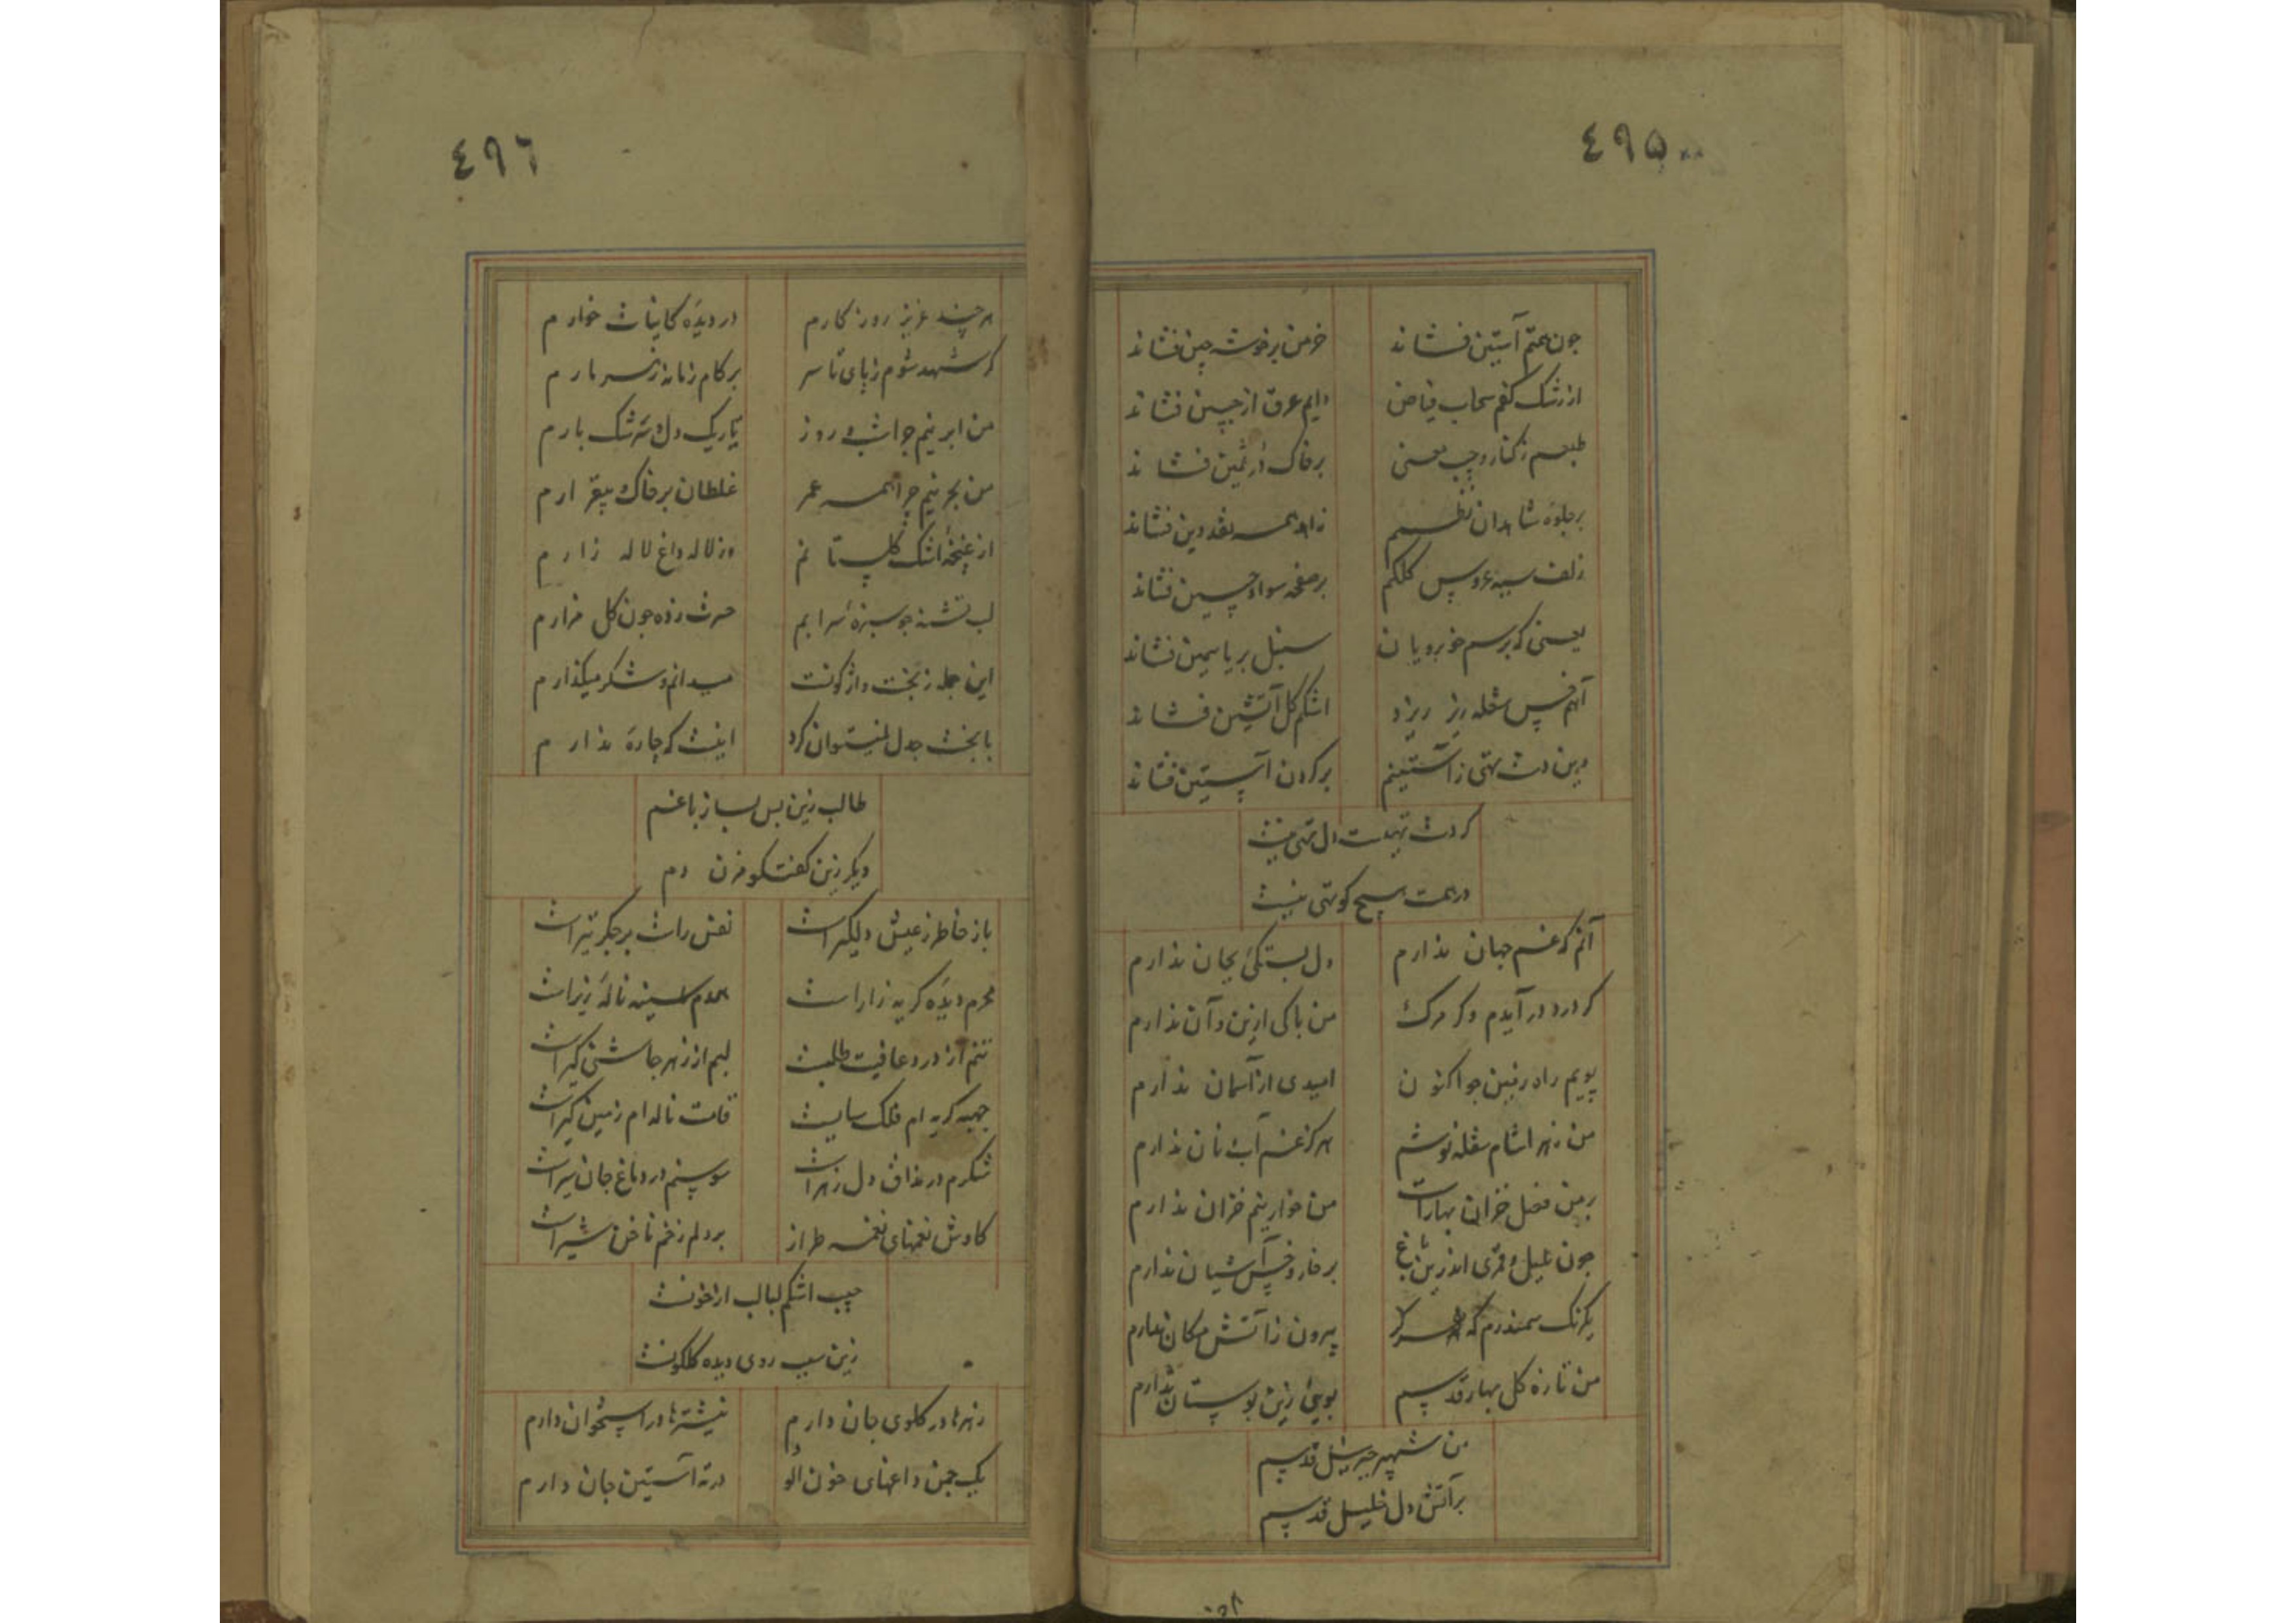 ٤٩٥
چون همتم آستین فشاند خرمن بر خوشه چین فشاند
از رشک کفم سحاب فیاض دایم عرق از جبین فشاند
طبعم ز کنار و جیب معنی بر خاک در ثمین فشاند
بر جلوه شاهدان نظمم زاهد همه نقد دین فشاند
زلف سیه عروس کلکم بر صفحه سواد چین فشاند
یعنی که برسم خوبرویان سنبل بر یاسمین فشاند
آهم نفس شعله ریز ریزد اشکم گل آتشین فشاند
وین دست تهی ز آستینم بر گردن آستین فشاند
گر دست تهیست دل تهی نیست
در همت هیچ کوتهی نیست
آنم که غم جهان ندارم دل بستگی بجان ندارم
گر درد در آیدم و گر مرگ من باکی ازین و آن ندارم
پویم راه زمین چو اکنون امیدی از آسمان ندارم
من زهر آشام شعله نوشم هرگز غم آب و نان ندارم
بر من فصل خزان بهارست من خوارینم خزان ندارم
چون بلبل و قمری اندرین باغ بر خار و خس آشیان ندارم
یکرنگ سمندرم که هرگز بیرون ز آتش مکان ندارم
من تازه گل بهار قدسم بویی زین بوستان ندارم
من شهپر جبرئیل قدسم
بر آتش دل خلیل قدسم
٤٩٦
هر چند عزیز روزگارم در دیده کاینات خوارم
گر شهد شوم ز پای تا سر بر کام زمانه زهر مارم
من ابر نیم چرا شب و روز تاریک دل و سرشک بارم
من بحر نیم چرا همه عمر غلطان بر خاک بیقرارم
از غنچه اشک گلستانم وز لاله داغ لاله زارم
لب تشنه چو سبزه سرابم حسرت زده چون گل مزارم
این جمله ز بخت واژگونست میدانم و شکر میگذارم
با بخت جدل نمیتوان کرد اینست که چاره ندارم
طالب زین پس بساز با غم
دیگر زین گفتگو مزن دم
باز خاطر ز عیش دلگیر است نفس راست بر جگر تیر است
محرم دیده گریه زار است همدم سینه ناله زیر است
تنم از درد عافیت طلبست لبم از زهر چاشنی گیر است
جبهه گریه ام فلک سایست قامت ناله ام زمین گیر است
شکرم در مذاق دل زهر است سوسنم در دماغ جان سیر است
کاوش نغمهای نغمه طراز بر دلم زخم ناخن شیر است
جیب اشکم لبالب از خونست
زین سبب روی دیده گلگونست
زهرها در گلوی جان دارم نیشترها در استخوان دارم
یک چمن داغهای خون آلود در ته آستین جان دارم